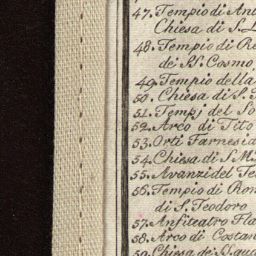 47. Tempio di Ant
Chiesa di S. L
48. Tempio di Re
de' SS. Cosmo
49. Tempio della
50. Chiesa di S.
51. Tempj del So
52. Arco di Tito
53. Orti Farnesia
54. Chiesa di S. M
55. Avanzi del Te
56. Tempio di Rom
di S. Teodoro
57. Anfiteatro Fla
58. Arco di Costan
59. Chiesa de'